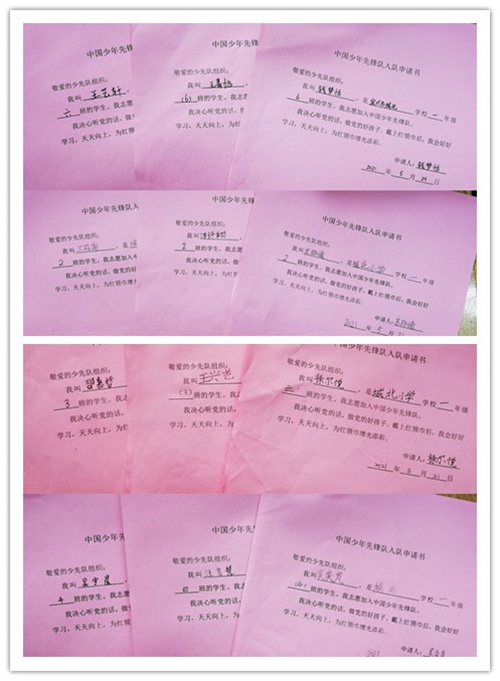 中国少年先锋队
敬爱的少先队组织：
我叫
六 班的学生。我志愿
我决心听党的话，做
学习，天天向上，为红
中国少年先
敬爱的少先队组织：
我叫
(6) 班的学生。我志愿
我决心听党的话，
学习，天天向上，为
中国少年先锋队入队申请书
敬爱的少先队组织：
我叫 钱梦恬 ，是 学校 一 年级
6 班的学生。我志愿加入中国少年先锋队。
我决心听党的话，做党的好孩子。戴上红领巾后，我会好好
学习，天天向上，为红领巾增光添彩。
申请人：钱梦恬
2021 年 5 月 日
敬爱的少先队组织：
我叫 ，是
2 班的学生。我志愿加入中
我决心听党的话，做党
学习，天天向上，为红领
中国少年先锋
敬爱的少先队组织：
我叫
2 班的学生。我志愿加
我决心听党的话，
学习，天天向上，为红
中国少年先锋队入队申请书
敬爱的少先队组织：
我叫 ，是 城北小学 学校 一 年级
2 班的学生。我志愿加入中国少年先锋队。
我决心听党的话，做党的好孩子。戴上红领巾后，我会好好
学习，天天向上，为红领巾增光添彩。
申请人：
2021 年 5 月 21
敬爱的少先队组织：
我叫
3 班的学生。我志愿
我决心听党的话，做
学习，天天向上，为红
敬爱的少先队组织：
我叫
(3) 班的学生。我志愿
我决心听党的话，
学习，天天向上，为
中国少年先锋队入队申请书
敬爱的少先队组织：
我叫 徐尔悦 ，是 城北小学 学校 一 年级
三 班的学生。我志愿加入中国少年先锋队。
我决心听党的话，做党的好孩子。戴上红领巾后，我会好好
学习，天天向上，为红领巾增光添彩。
申请人：徐尔悦
2021 年 5 月 21 日
中国少年先锋队
敬爱的少先队组织：
我叫
4 班的学生。我志愿
我决心听党的话，做
学习，天天向上，为红
中国少年先
敬爱的少先队组织：
我叫
四 班的学生。我志愿
我决心听党的话，
学习，天天向上，为
中国少年先锋队入队申请书
敬爱的少先队组织：
我叫 ，是 学校 一 年级
(4) 班的学生。我志愿加入中国少年先锋队。
我决心听党的话，做党的好孩子。戴上红领巾后，我会好好
学习，天天向上，为红领巾增光添彩。
申请人：
2021